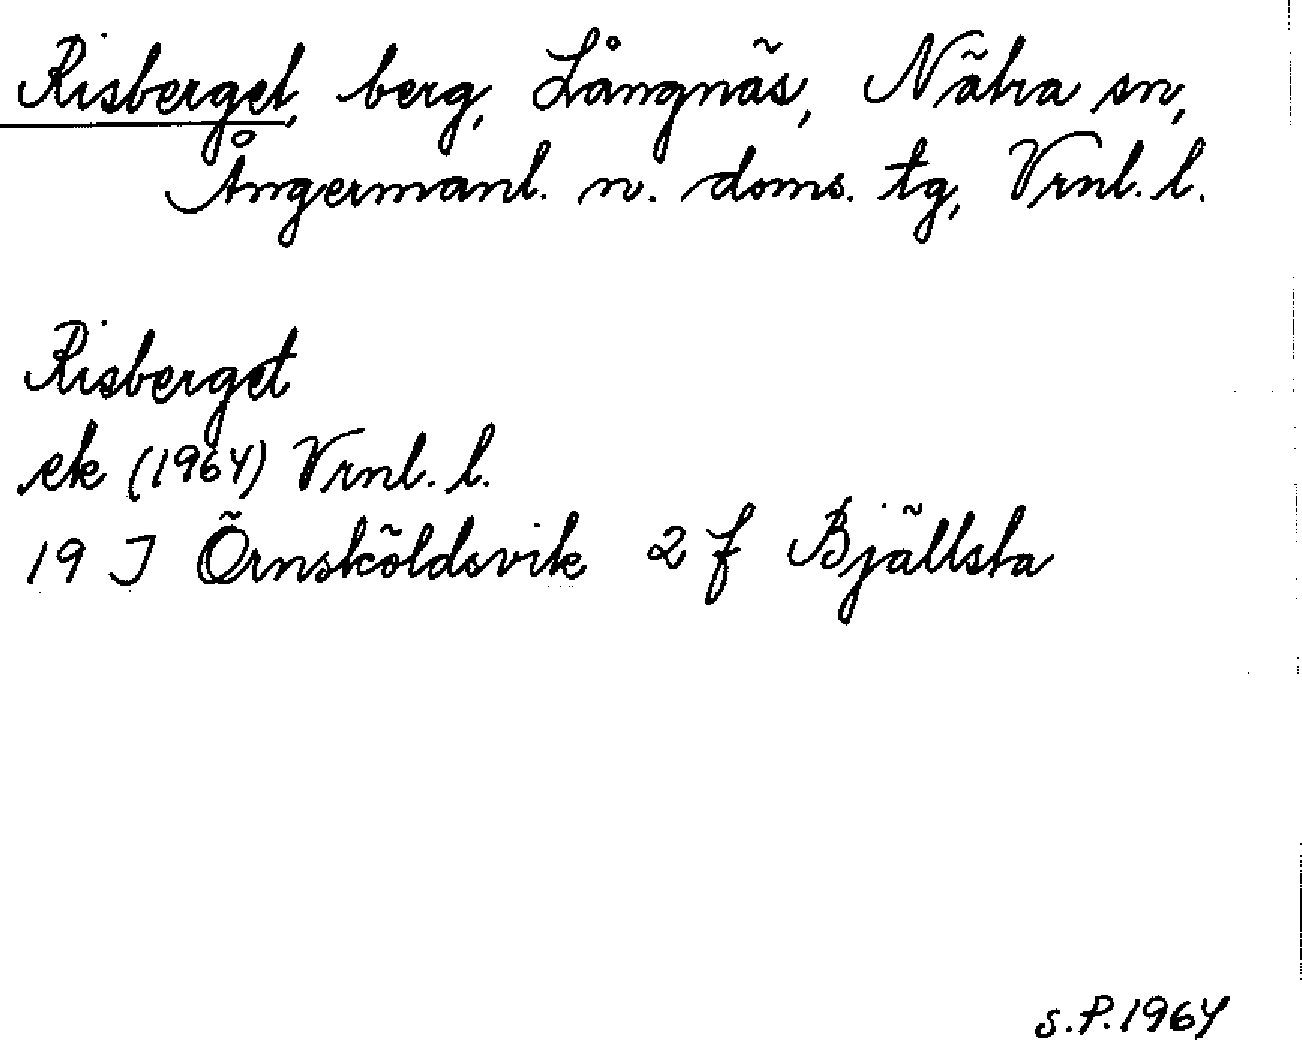 Risberget, berg, Långnäs, Nätra sn,
Ångermanl. n. doms. tg, Vrnl. l.
Risberget
ek (1964) Vrnl. l.
19 J Örnsköldsvik 2 f Bjällsta
S.P. 1964